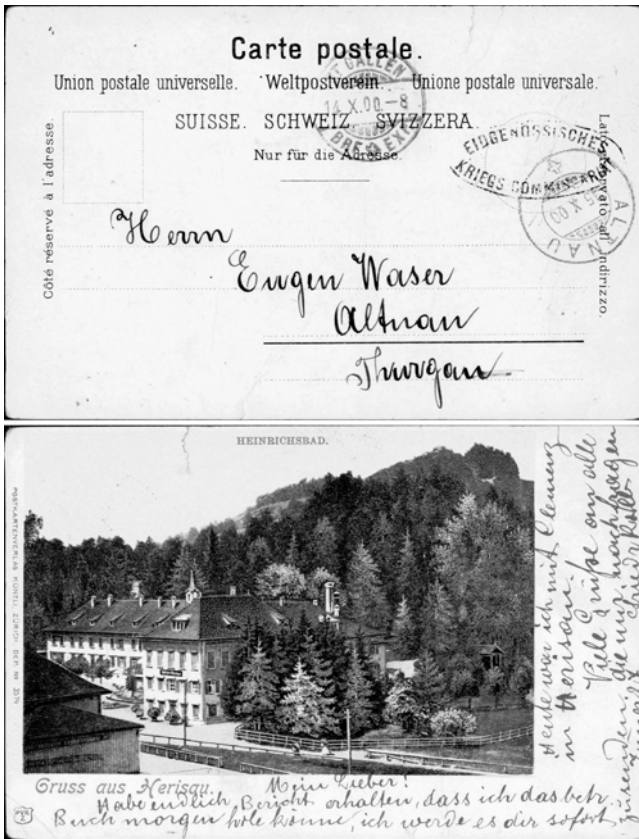 Carte postale.
Union postale universelle. Weltpostverein. Unione postale universale.
SUISSE. SCHWEIZ. SVIZZERA.
Nur für die Adresse.
Côté réservé à l'adresse.
Lato riservato all'indirizzo.
ST. GALLEN
14.X.00.-8
BRF. EXP.
EIDGENÖSSISCHES
KRIEGS COMMISSARIAT
ALTNAU
X.00
Herrn
Eugen Waser
Altnau
Thurgau
HEINRICHSBAD.
POSTKARTENVERLAG KÜNZLI, ZÜRICH DEP. Nr
Gruss aus Herisau.
Mein Lieber!
Habe endlich Bericht erhalten, dass ich das betr.
Buch morgen hole könne, ich werde es dir sofort
zusenden.
Heute war ich mit Clemenz
in Herisau.
Viele Grüße an alle
die mir nachfragen